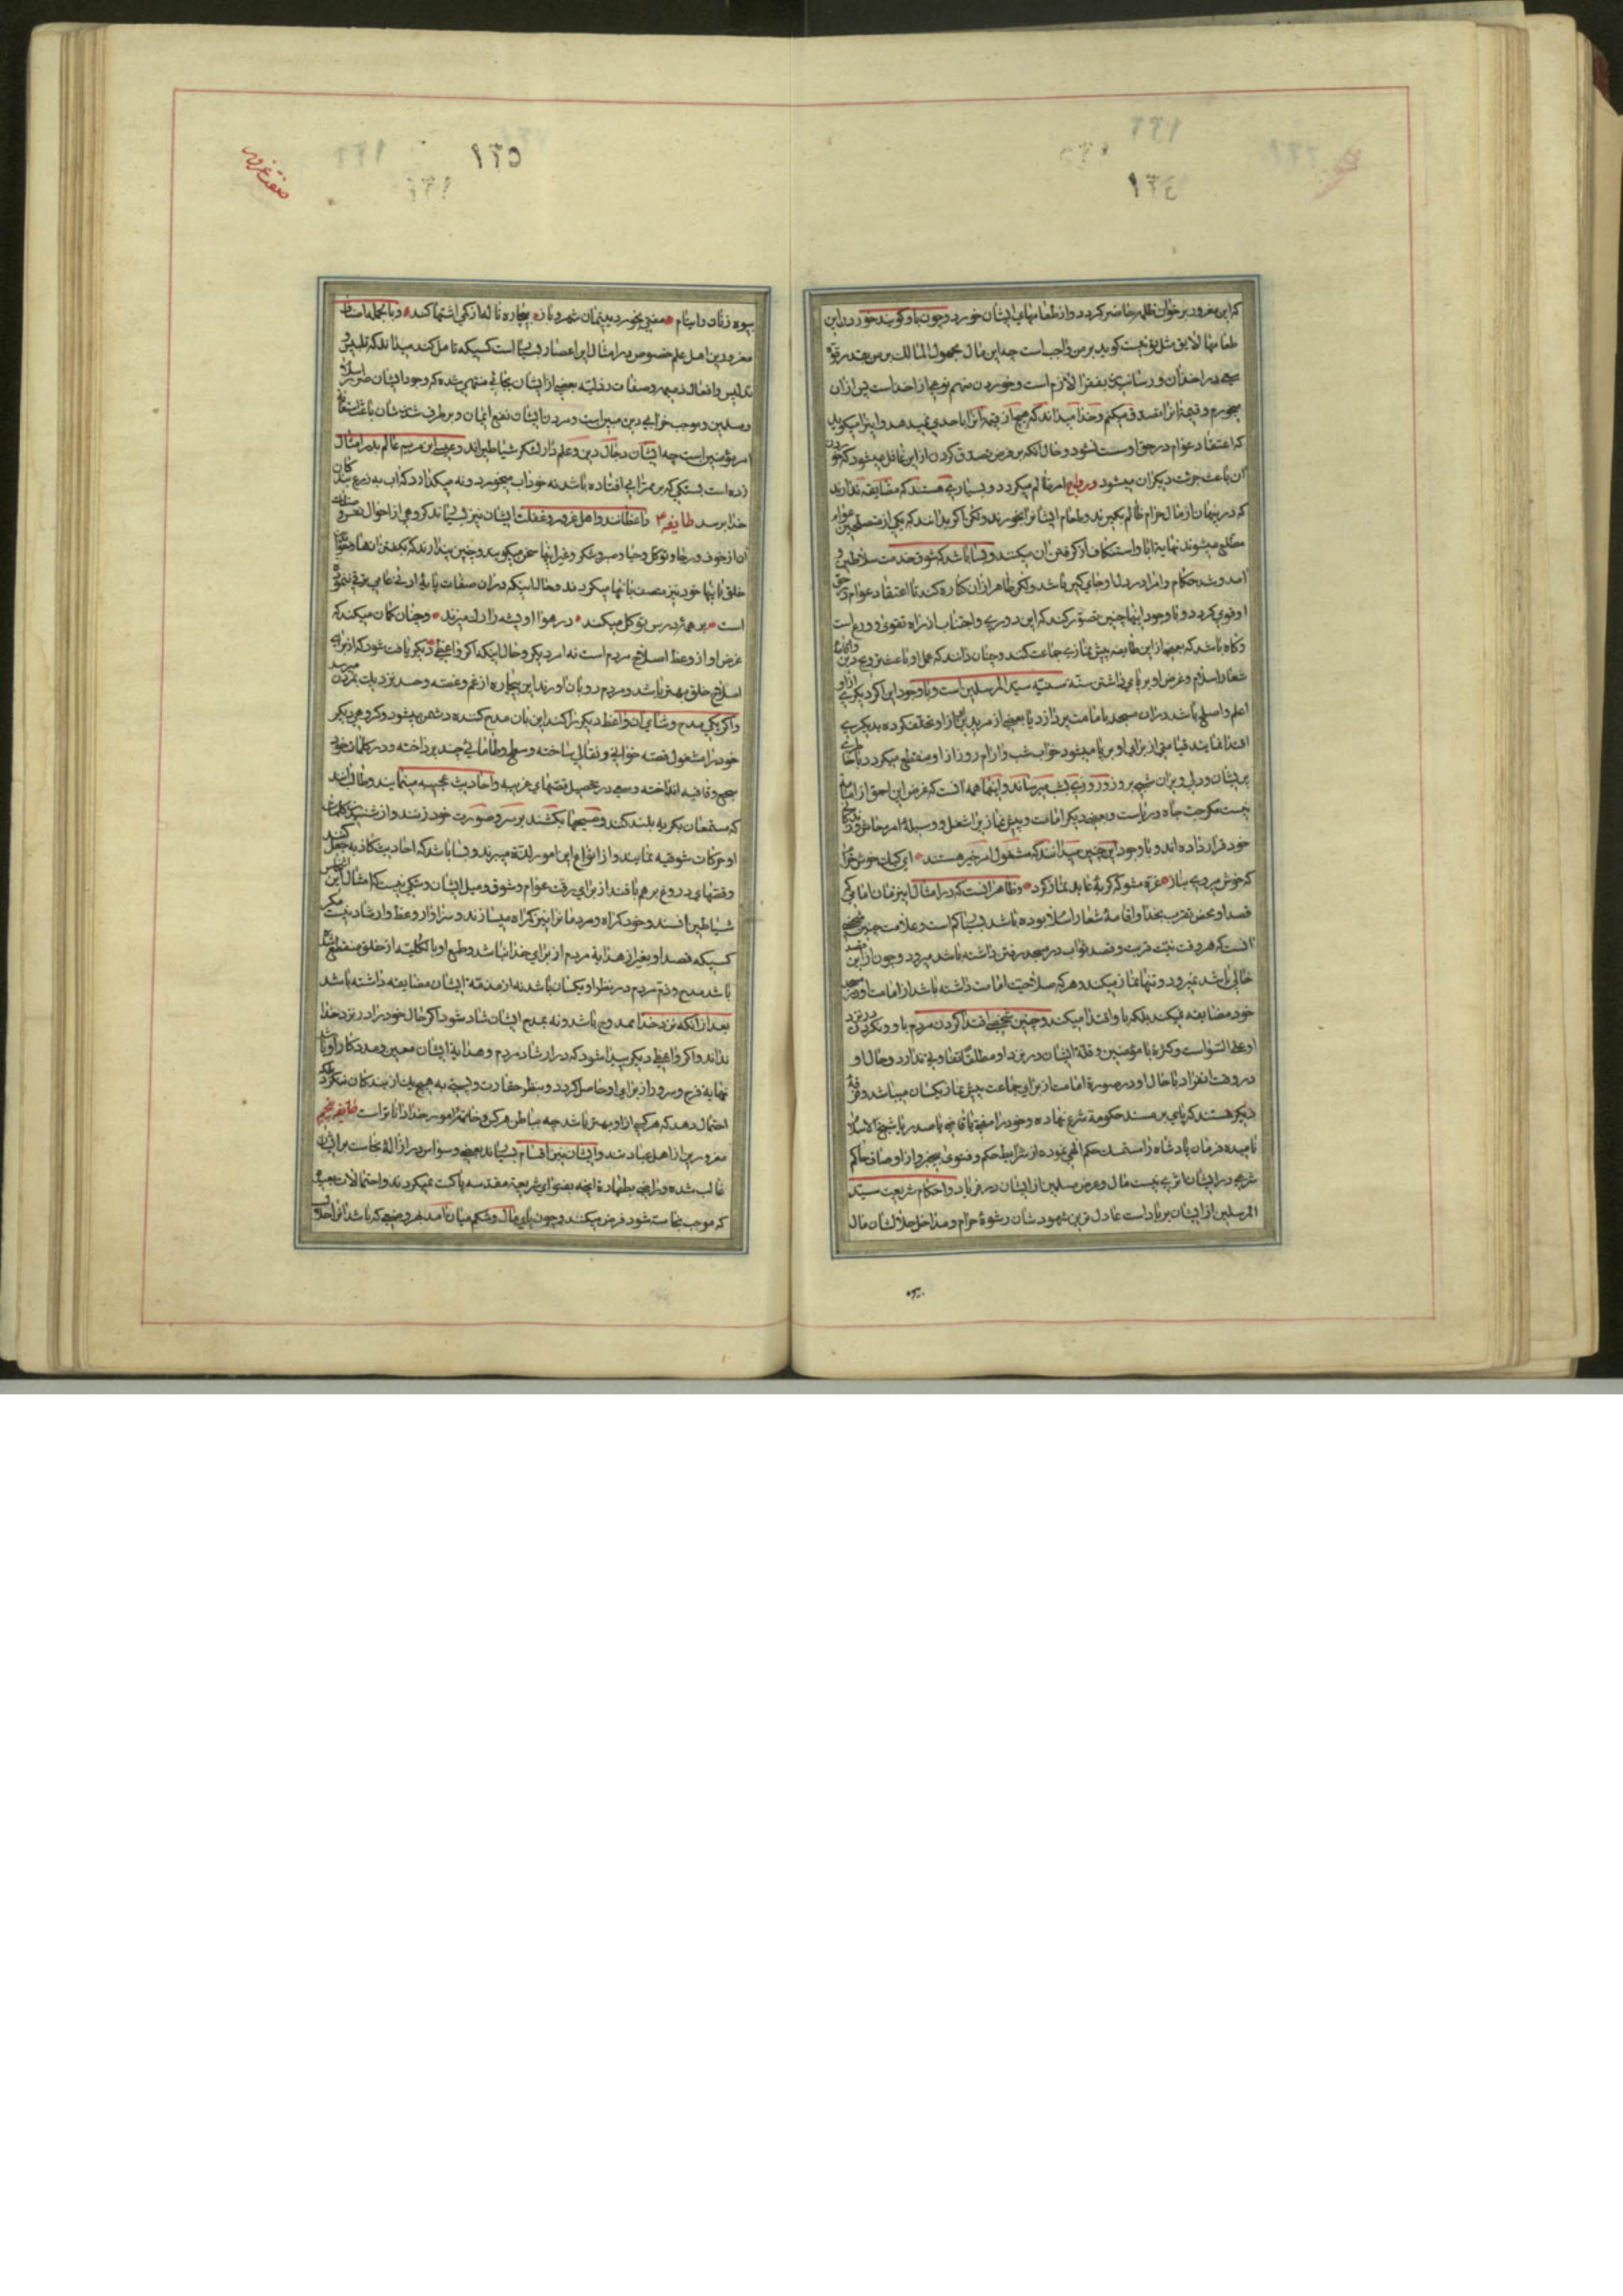 ١٣٤
که این مغرور بر خوان ظلمه حاضر گردد و از طعامهای ایشان خورد و چون باو گویند خوردن این
طعامها لایق مثل تو نیست گوید بر من واجب است چه این مال مجهول المالک بر من بقدر قوه
سعی در اخذ آن و رسانیدن بفقرا لازم است و خوردن منهم نوعی از اخذ است پس از آن
میخورم و قیمة آنرا تصدق میکنم و خدا میداند که هیچ از قیمة آنرا باحدی نمیدهد و اینرا میگوید
که اعتقاد عوام در حق او سست نشود و حال آنکه بر فرض تصدق کردن از این غافل میشود که خوردن
آن باعث جرئت دیگران میشود و رواج امر ظالم میگردد و بسیاری هستند که مضایقه ندارند
که در پنهان از مال حرام ظالم بگیرند و طعام ایشانرا بخورند ولکن اگر بدانند که یکی از عوام
مطلع میشوند نهایة ابا و استنکاف از گرفتن آن میکنند و بسا باشد که شوق خدمت سلاطین و
آمد و شد حکام و امرا در دل او جای گیر باشد ولکن ظاهرا از آن کناره کند تا اعتقاد عوام در حق
او قوی گردد و با وجود اینها چنین تصور کند که این دوری و اجتناب از راه تقوی و ورع است
و گاه باشد که بعضی از این طایفه پیش نمازی جماعت کنند و چنان دانند که عمل او باعث ترویج دین و اقامة
شعار اسلام و غرض او بر پای داشتن سنّة سنیّه سید المرسلین است و با وجود این اگر دیگری از او
اعلم و اصلح باشد در آن مسجد بامامت پردازد یا بعضی از مریدان از او تخلف کرده بدیگری
اقتدا نمایند قیامتی از برای او بر پا میشود خواب شب و آرام روز از او منقطع میگردد با خاطری
پریشان و دلی ویران شبی بروز و روزی بشب میرساند و اینها همه آنست که غرض این احمق از امامة
نیست مگر حب جاه و ریاست و بعضی دیگر امامت و پیش نماز یرا شغل و وسیلة امر معاش و زندگانی
خود قرار داده اند و با وجود این چنین میدانند که مشغول امر خیر هستند ای کبک خوش خرام
که خوش میروی بناز غره مشو که گربۀ عابد نماز کرد و ظاهر آنست که در امثال اینزمان امامی که
قصد او محض تقرب بخدا و اقامة شعار اسلام بوده باشد بسیار کم است و علامت چنین شخصی
آنست که هر وقت نیت قربت و قصد ثواب در مسجد رفتن داشته باشد میرود و چون از این قصد
خالی باشد نمیرود و تنها نماز میکند و هر که صلاحیت امامت داشته باشد از امامت او در مسجد
خود مضایقه نمیکند بلکه باو اقتدا میکند و چنین شخصی اقتدا کردن مردم باو و نکردن در نزد
او علی السّواست و کثرة مامؤمنین و قلّة ایشان در نزد او مطلقاً تفاوتی ندارد و حال او
در وقت انفراد با حال او در صورة امامت از برای جماعت پیش نماز یکسان میباشد و فرقۀ
دیگر هستند که پای بر مسند حکومة شرع نهاده و خود را مفتی یا قاضی یا صدر یا شیخ الاسلام
نامیده فرمان پادشاه را مستمسک حکم الهی نموده از شرایط حکم و فتوی بیخبر و از اوصاف حاکم
شرعی در ایشان اثری نیست مال و عرض مسلمین از ایشان در فریاد و احکام شریعت سیّد
المرسلین از ایشان بر باد است عادل ترین شهودشان رشوۀ حرام و مداخل حلالشان مال
١٣٥
صفت غرور
بیوه زنان و ایتام مفتی بخورد یتیمان شمرد باز بیچاره ناله از کمی اشتها کند و بالجمله اصناف
مغرورین اهل علم خصوص در امثال این اعصار بسیار است کسیکه تامل کند میداند که تلبیس و
تدلیس و افعال ذمیمه و صفات رذیلة بعضی از ایشان بجائی منتهی شده که وجود ایشان ضرر اسلام
و مسلمین و موجب خرابی دین مبین است و مردن ایشان نفع ایمان و بر طرف شدنشان باعث انتظام
امر مؤمنین است چه ایشان دجال دین و علمدار لشکر شیاطین اند و عیسی ابن مریم عالم بد را مثال
زده است بسنگی که بر ممر آبی افتاده باشد نه خود آب میخورد و نه میگذارد که آب بزرع بندگان
خدا برسد طایفه ۴ واعظانند و اهل غرور و غفلت ایشان نیز بسیارند گروهی از احوال نفس و صفات
آن از خوف و رجا و توکل و حیا و صبر و شکر و غیر اینها سخن میگویند و چنین پندارند که بگفتن آنها و خواندن
خلق باینها خود نیز متصف بآنها میگردند و حال اینکه در آن صفات پایۀ ادنی عامی ترقی ننموده
است بر همه درس توکل میکند در هوا او پشه را رگ میزند و چنان گمان میکند که
غرض او از وعظ اصلاح مردم است نه امر دیگر و حال اینکه اگر واعظی دیگر یافت شود که از برای
اصلاح خلق بهتر باشد و مردم رو بآن آورند این بیچاره از غم و غصه و حسد نزدیک بمردن میرسد
و اگر یکی مدح و ثنای آن واعظ دیگر را کند این بآن مدح کننده دشمن میشود و گروهی دیگر
خود را مشغول قصه خوانی و نقالی ساخته و سطح و طاماتی چند پرداخته و در کلمات خود
سجع و قافیه انداخته و سعی در تحصیل قصّهای غریبه و احادیث عجیبه مینمایند و طالبند
که مستمعان بگریه بلند کنند و صیحها بکشند بر سر و صورت خود زنند و از شنیدن کلمات
او حرکات شوقیه نمایند و از انواع این امور لذّة میبرند و بسا باشد که احادیث کاذبه جعل کنند
و قصّهای دروغ بر هم بافند از برای رقت عوام و شوق و میل ایشان و شکی نیست که امثال این اشخاص
شیاطین انسند و خود گمراه و مردمانرا نیز گمراه میسازند و سزاوار وعظ و ارشاد نیست مگر
کسیکه قصد او بغیر از هدایة مردم از برای خدا نباشد و طمع او بالکلیّه از خلق منقطع شده
باشد مدح و ذم مردم در نظر او یکسان باشد نه از مذمّة ایشان مضایقه داشته باشد
بعد از آنکه نزد خدا ممدوح باشد و نه بمدح ایشان شاد شود اگر حال خود را در نزد خدا
نداند و اگر واعظی دیگر پیدا شود که در ارشاد مردم و هدایة ایشان معین و مددکار او باشد
نهایة فرح و سرور از برای او حاصل گردد و بنظر حقارت و پستی به هیچ یک از بندگان ننگرد بلکه
احتمال دهد که هر کسی از او بهتر باشد چه بباطن هر کس و خاتمۀ امور خدا دانا تر است طایفۀ پنجم
مغرورین از اهل عبادتند و ایشان نیز اقسام بسیارند بعضی وسواس در ازالة نجاست بر ایشان
غالب شده و راضی بطهارة آنچه بفتوای شریعة مقدسه پاکست نمیگردند و احتمالات بعیده
که موجب نجاست شود فرض میکنند و چون پای مال و شکم میان آمد هر وضعی که باشد آنرا حلال
بیوه